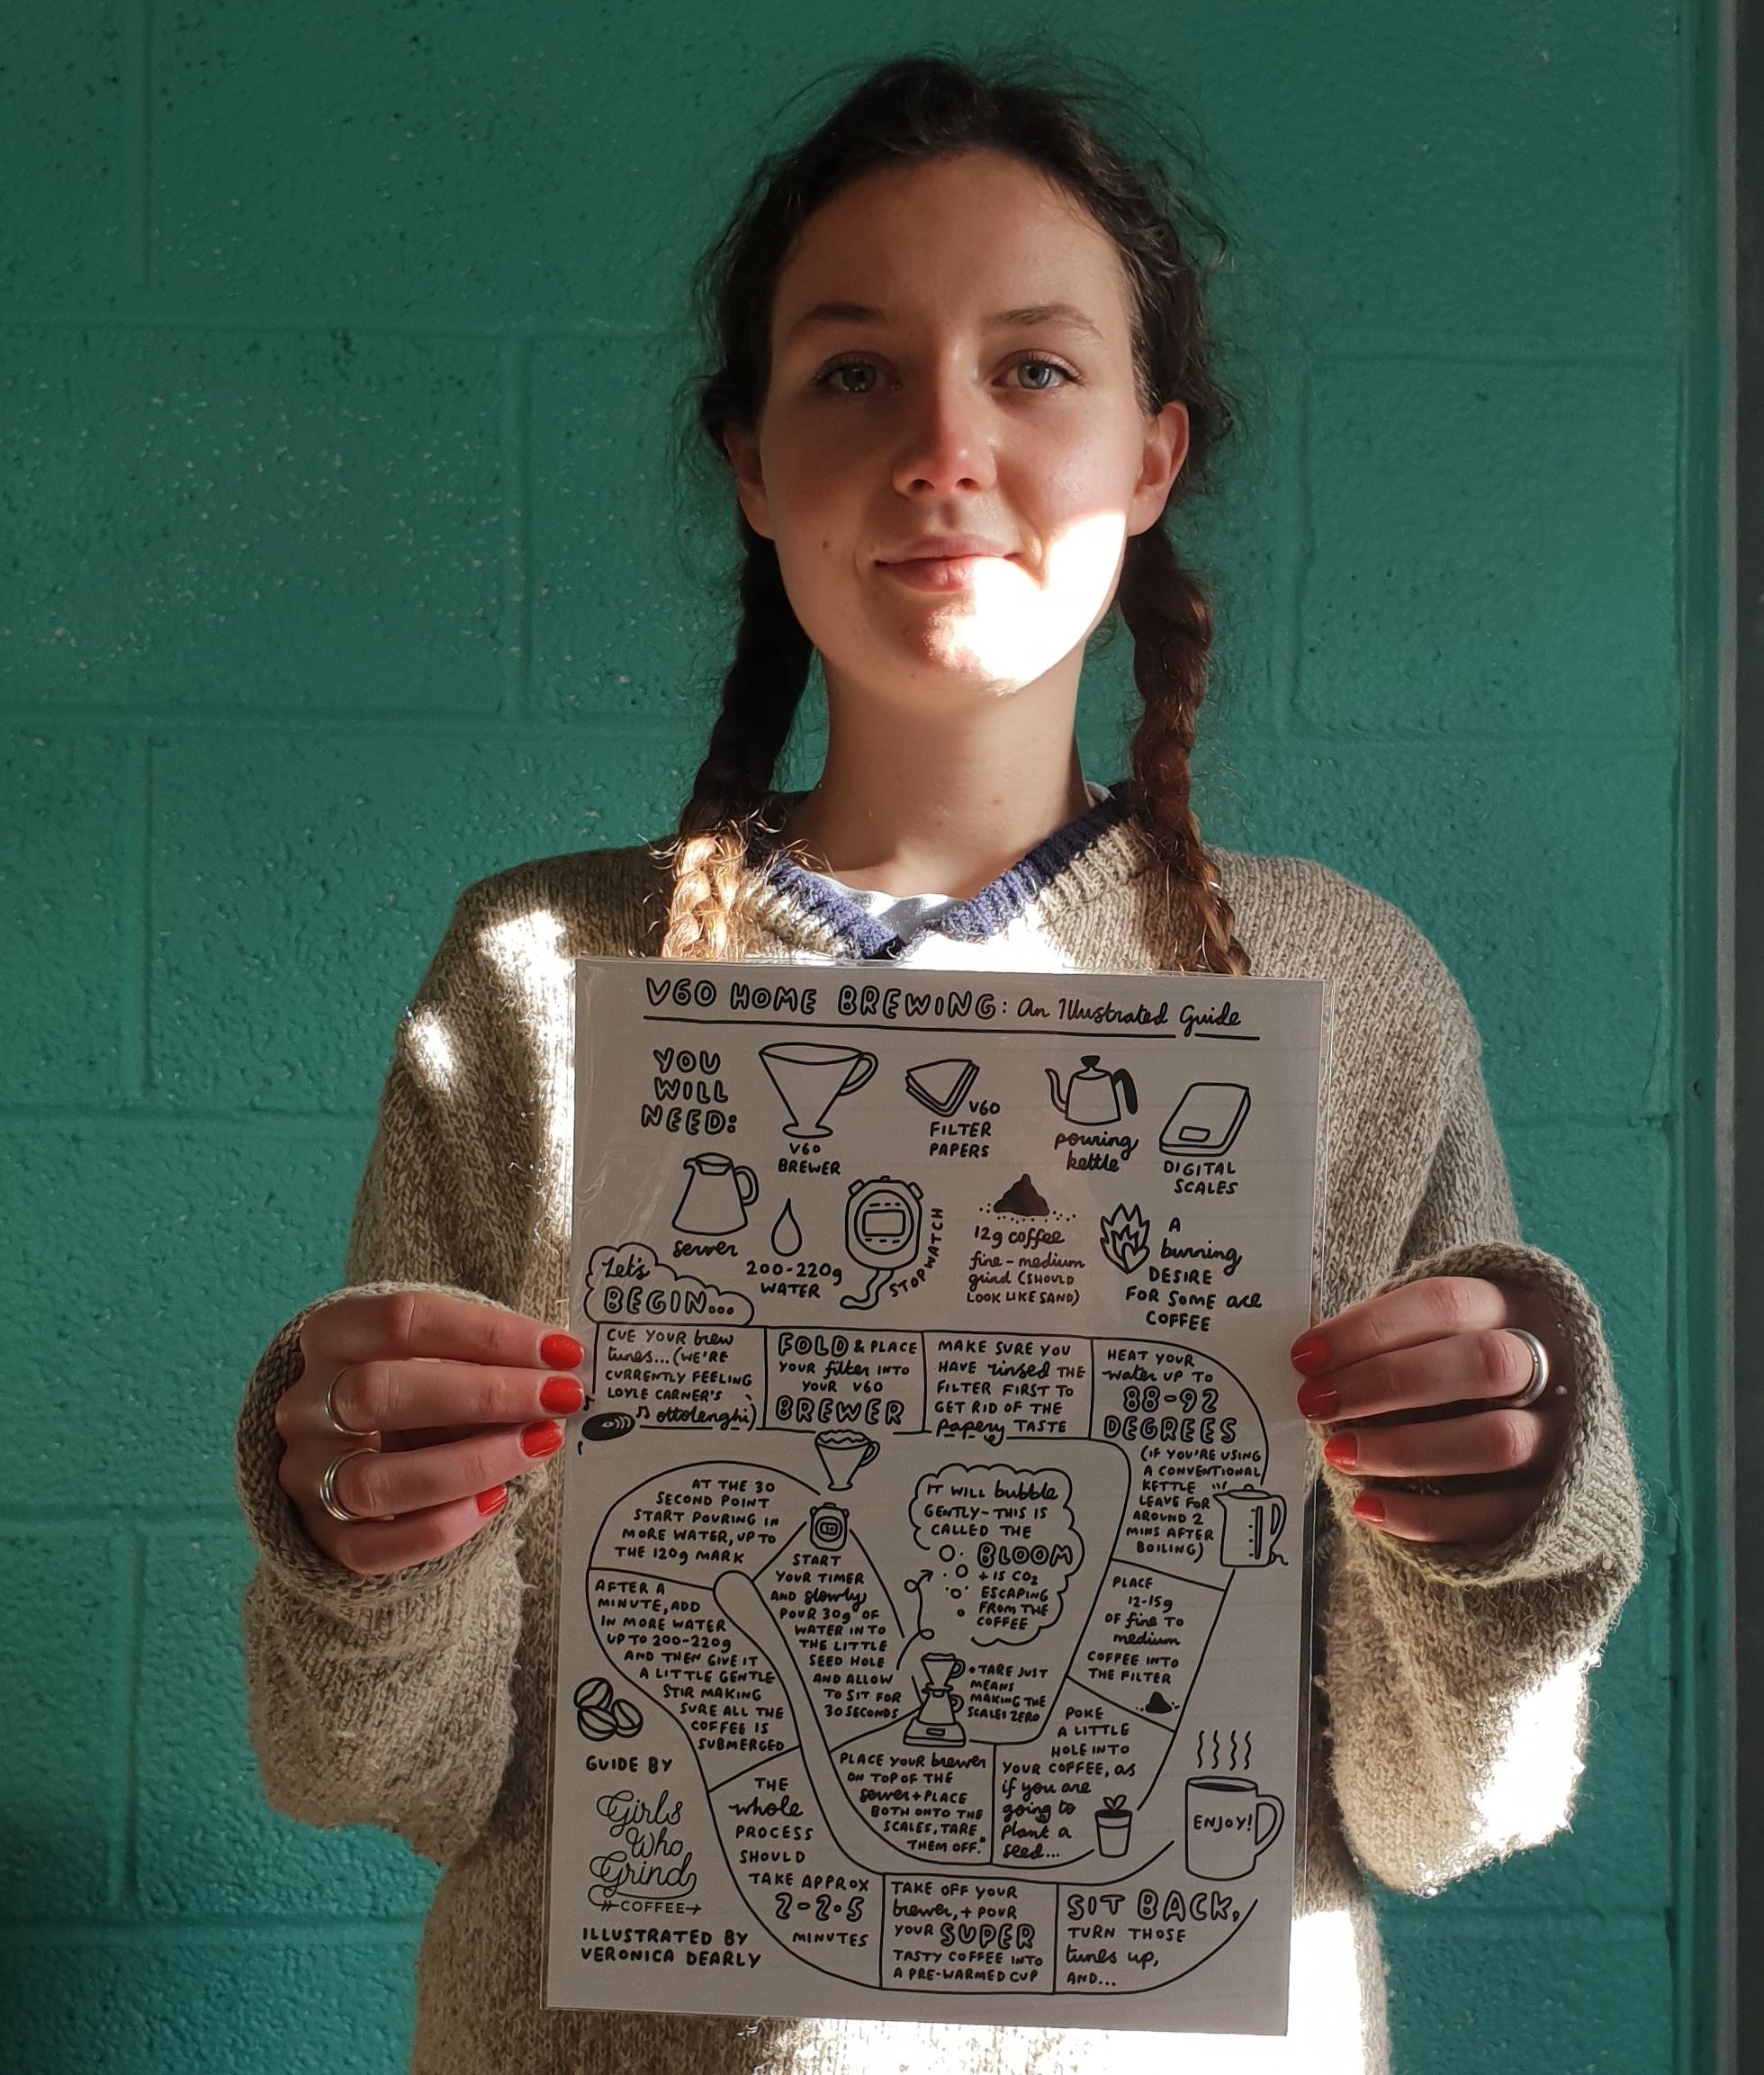 V60 HOME BREWING: An Illustrated Guide
YOU
WILL
NEED:
V60
BREWER
V60
FILTER
PAPERS
pouring
kettle
DIGITAL
SCALES
server
200-220g
WATER
STOPWATCH
12g coffee
fine-medium
grind (SHOULD
LOOK LIKE SAND)
A
burning
DESIRE
FOR SOME ace
COFFEE
Let's
BEGIN...
CUE YOUR brew
tunes... (WE'RE
CURRENTLY FEELING
LOYLE CARNER'S
ottolenghi)
FOLD & PLACE
YOUR filter INTO
YOUR V60
BREWER
MAKE SURE YOU
HAVE rinsed THE
FILTER FIRST TO
GET RID OF THE
papery TASTE
HEAT YOUR
water UP TO
88-92
DEGREES
(IF YOU'RE USING
A CONVENTIONAL
KETTLE
LEAVE FOR
AROUND 2
MINS AFTER
BOILING)
PLACE
12-15g
OF fine TO
medium
COFFEE INTO
THE FILTER
POKE
A LITTLE
HOLE INTO
YOUR COFFEE, as
if you are
going to
plant a
seed...
PLACE YOUR brewer
ON TOP OF THE
server + PLACE
BOTH ONTO THE
SCALES, TARE
THEM OFF.*
* TARE JUST
MEANS
MAKING THE
SCALES ZERO
START
YOUR TIMER
AND slowly
POUR 30g OF
WATER INTO
THE LITTLE
SEED HOLE
AND ALLOW
TO SIT FOR
30 SECONDS
IT WILL bubble
GENTLY - THIS IS
CALLED THE
BLOOM
+ IS CO2
ESCAPING
FROM THE
COFFEE
AT THE 30
SECOND POINT
START POURING IN
MORE WATER, UP TO
THE 120g MARK
AFTER A
MINUTE, ADD
IN MORE WATER
UP TO 200-220g
AND THEN GIVE IT
A LITTLE GENTLE
STIR MAKING
SURE ALL THE
COFFEE IS
SUBMERGED
THE
whole
PROCESS
SHOULD
TAKE APPROX
2-2.5
MINUTES
TAKE OFF YOUR
brewer, + POUR
YOUR SUPER
TASTY COFFEE INTO
A PRE-WARMED CUP
SIT BACK,
TURN THOSE
tunes up,
AND...
ENJOY!
GUIDE BY
Girls
Who
Grind
COFFEE
ILLUSTRATED BY
VERONICA DEARLY